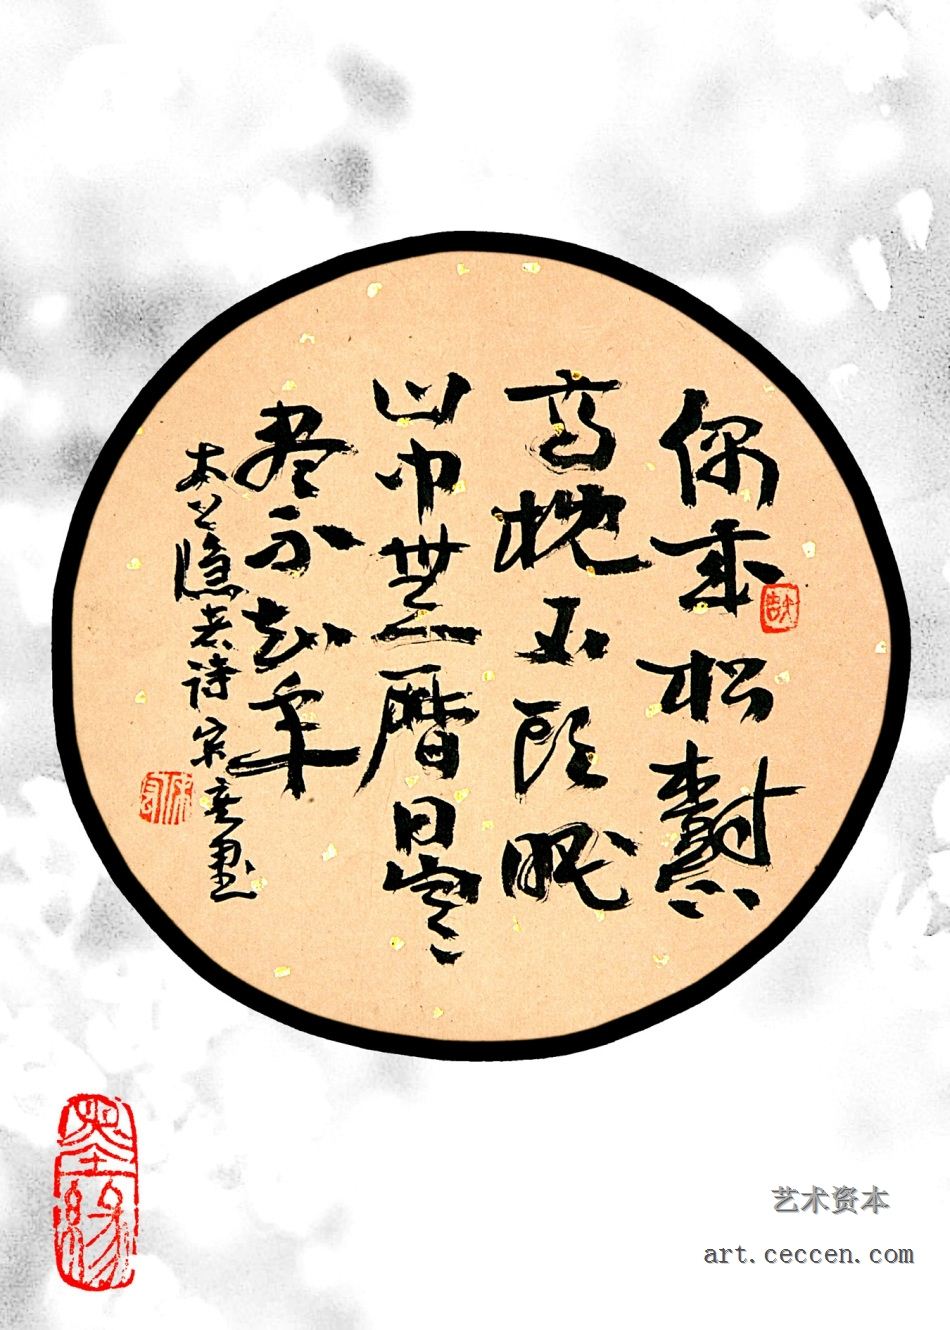 偶来松樹下
高枕石头眠
山中無暦日寒
尽不知年
太上隱者诗宋
墨缘
艺术资本
art.ceccen.com